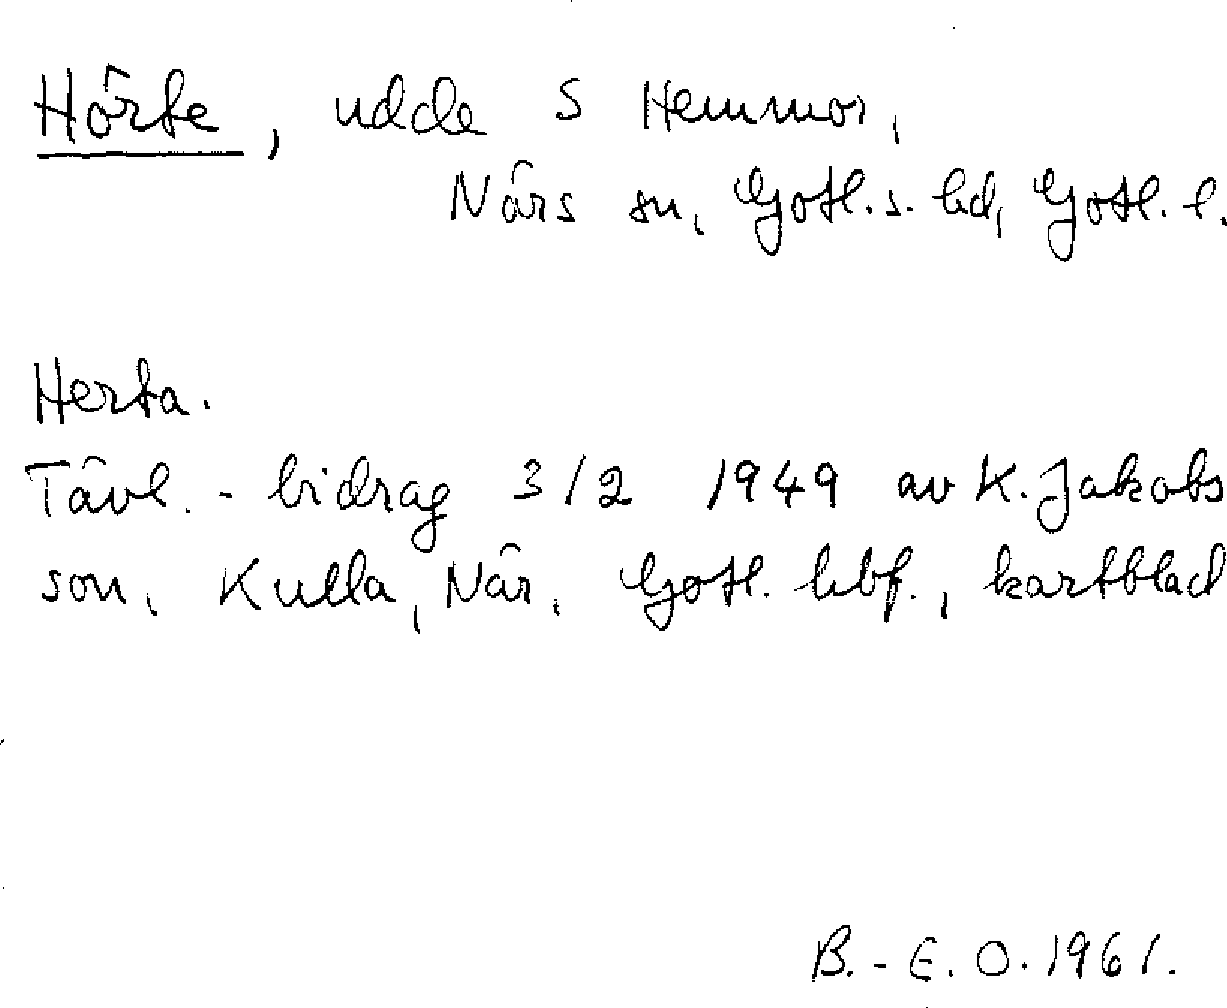 Hörte, udde S Hemmor,
Närs sn, Gotl. s. hd, Gotl. l.
Herta.
Tävl. - bidrag 3/2 1949 av K. Jakobs
son, Kulla, När, Gotl. hbf., kartblad
B.-E. O. 1961.